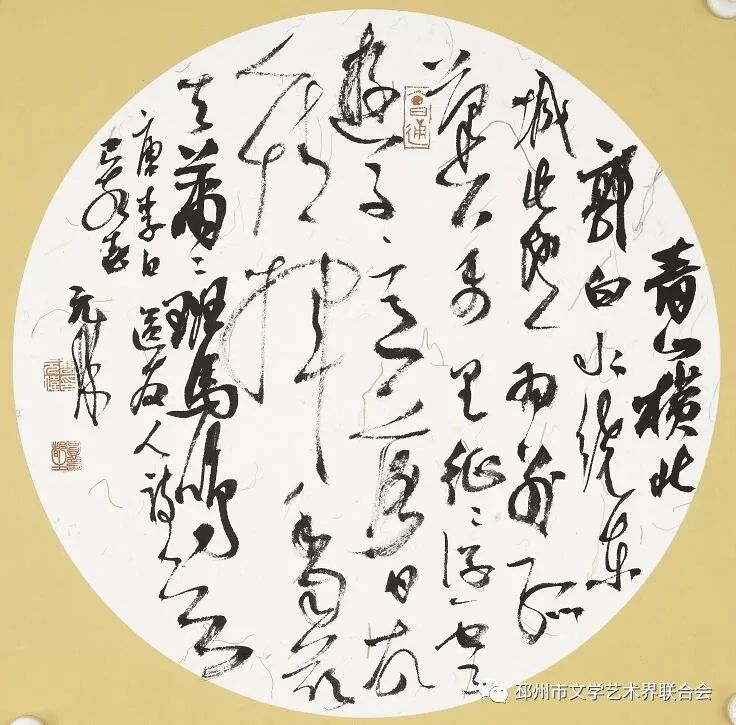 青山横北
郭白水绕东
城此地一为别孤
蓬万里征浮云
遊子意落日故
人情挥手自兹
去萧〻班马鸣
唐李白送友人诗
己亥春元
会通
邳州市文学艺术界联合会